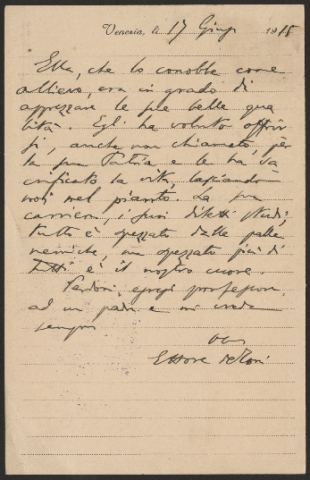 Venezia, a 17 Giugn 1918
Ella, che lo conobbe come
allievo, era in grado di
apprezzare le sue belle qua
lità. Egli ha voluto offrir
si, anche non chiamato, per
la sua Patria e le ha sa
crificato la vita, lasciandoci
noi nel pianto. La sua
carriera, i suoi diletti studi,
tutto è spezzato dalle palle
nemiche, ma spezzato più di
tutti è il nostro cuore.
Perdoni, egregi professore,
ad un padre e mi creda
sempre
Ettore De Toni